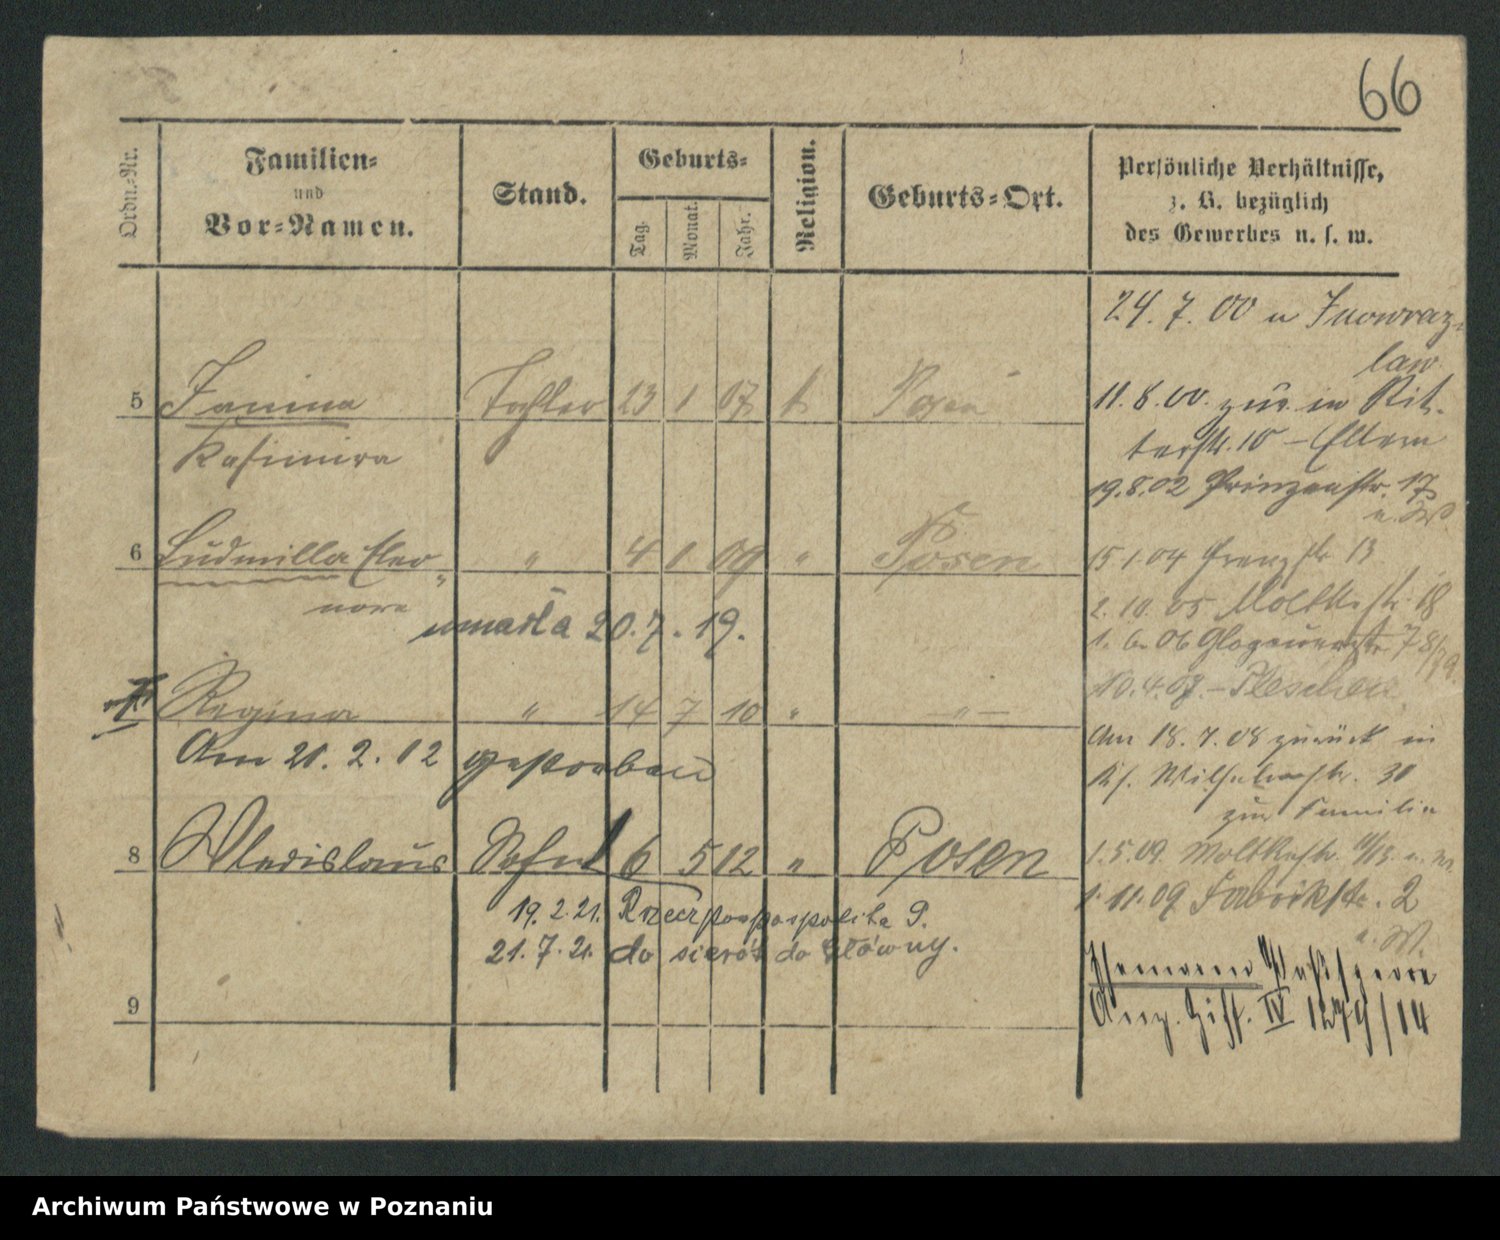 66
Ordn.-Nr.
Familien-
und
Vor-Namen.
Stand.
Geburts-
Tag.
Monat.
Jahr.
Religion.
Geburts-Ort.
Persönliche Verhältnisse,
z. B. bezüglich
des Gewerbes u. s. w.
24. 7. 00 n Inowraz-
law
5 Janina Tochter 23 1 07 k Posen
Kasimira
11. 8. 00. zur. in Rit-
terstr. 10 – Eltern
19. 8. 02 Prinzenstr. 17
6 Ludmilla Eleo- " 4 1 09 " Posen
nora
umarła 20. 7. 19.
15 1. 04 Grenzstr 13
2. 10. 05 Moltkestr. 18
1. 6. 06 Glogauerstr. 78/79
10. 4. 08. – Pleschen
7 Regina " 14 7 10 " " —
Am 21. 2. 12 gestorben
Am 18. 7. 08 zurück in
Wilhelmstr. 30
zur Familie
8 Wladislaus Sohn 6 5 12 " Posen
19. 2. 21. Rzeczpospospolita P.
21. 7. 21. do sierót do Główny.
1. 5. 09. Moltkestr.
1. 11. 09 Fabrikstr. 2
u. W.
Hermann
Anz. Zift. IV 1279/14
9
Archiwum Państwowe w Poznaniu